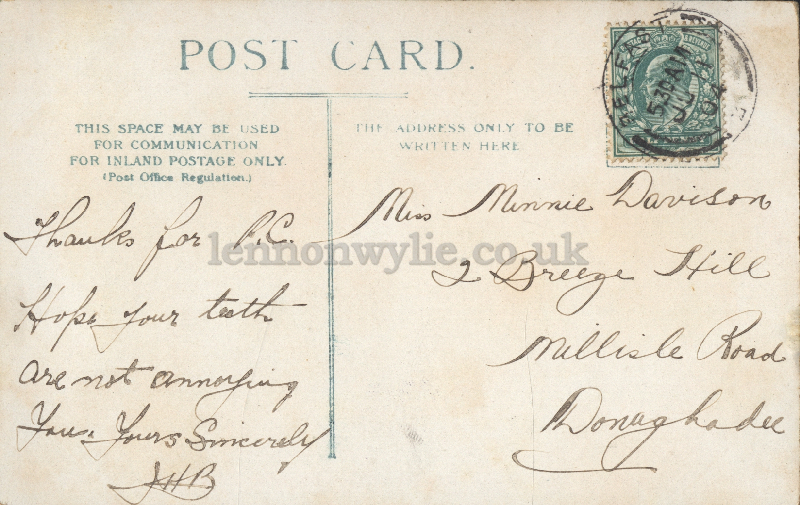 POST CARD.
THIS SPACE MAY BE USED
FOR COMMUNICATION
FOR INLAND POSTAGE ONLY.
(Post Office Regulation.)
THE ADDRESS ONLY TO BE
WRITTEN HERE
BELFAST
5 30 AM
JL
04
Thanks for P.C.
Hope your teeth
are not annoying
you. Yours Sincerely
JHB
Miss Minnie Davison
2 Breeze Hill
Millisle Road
Donaghadee
lennonwylie.co.uk